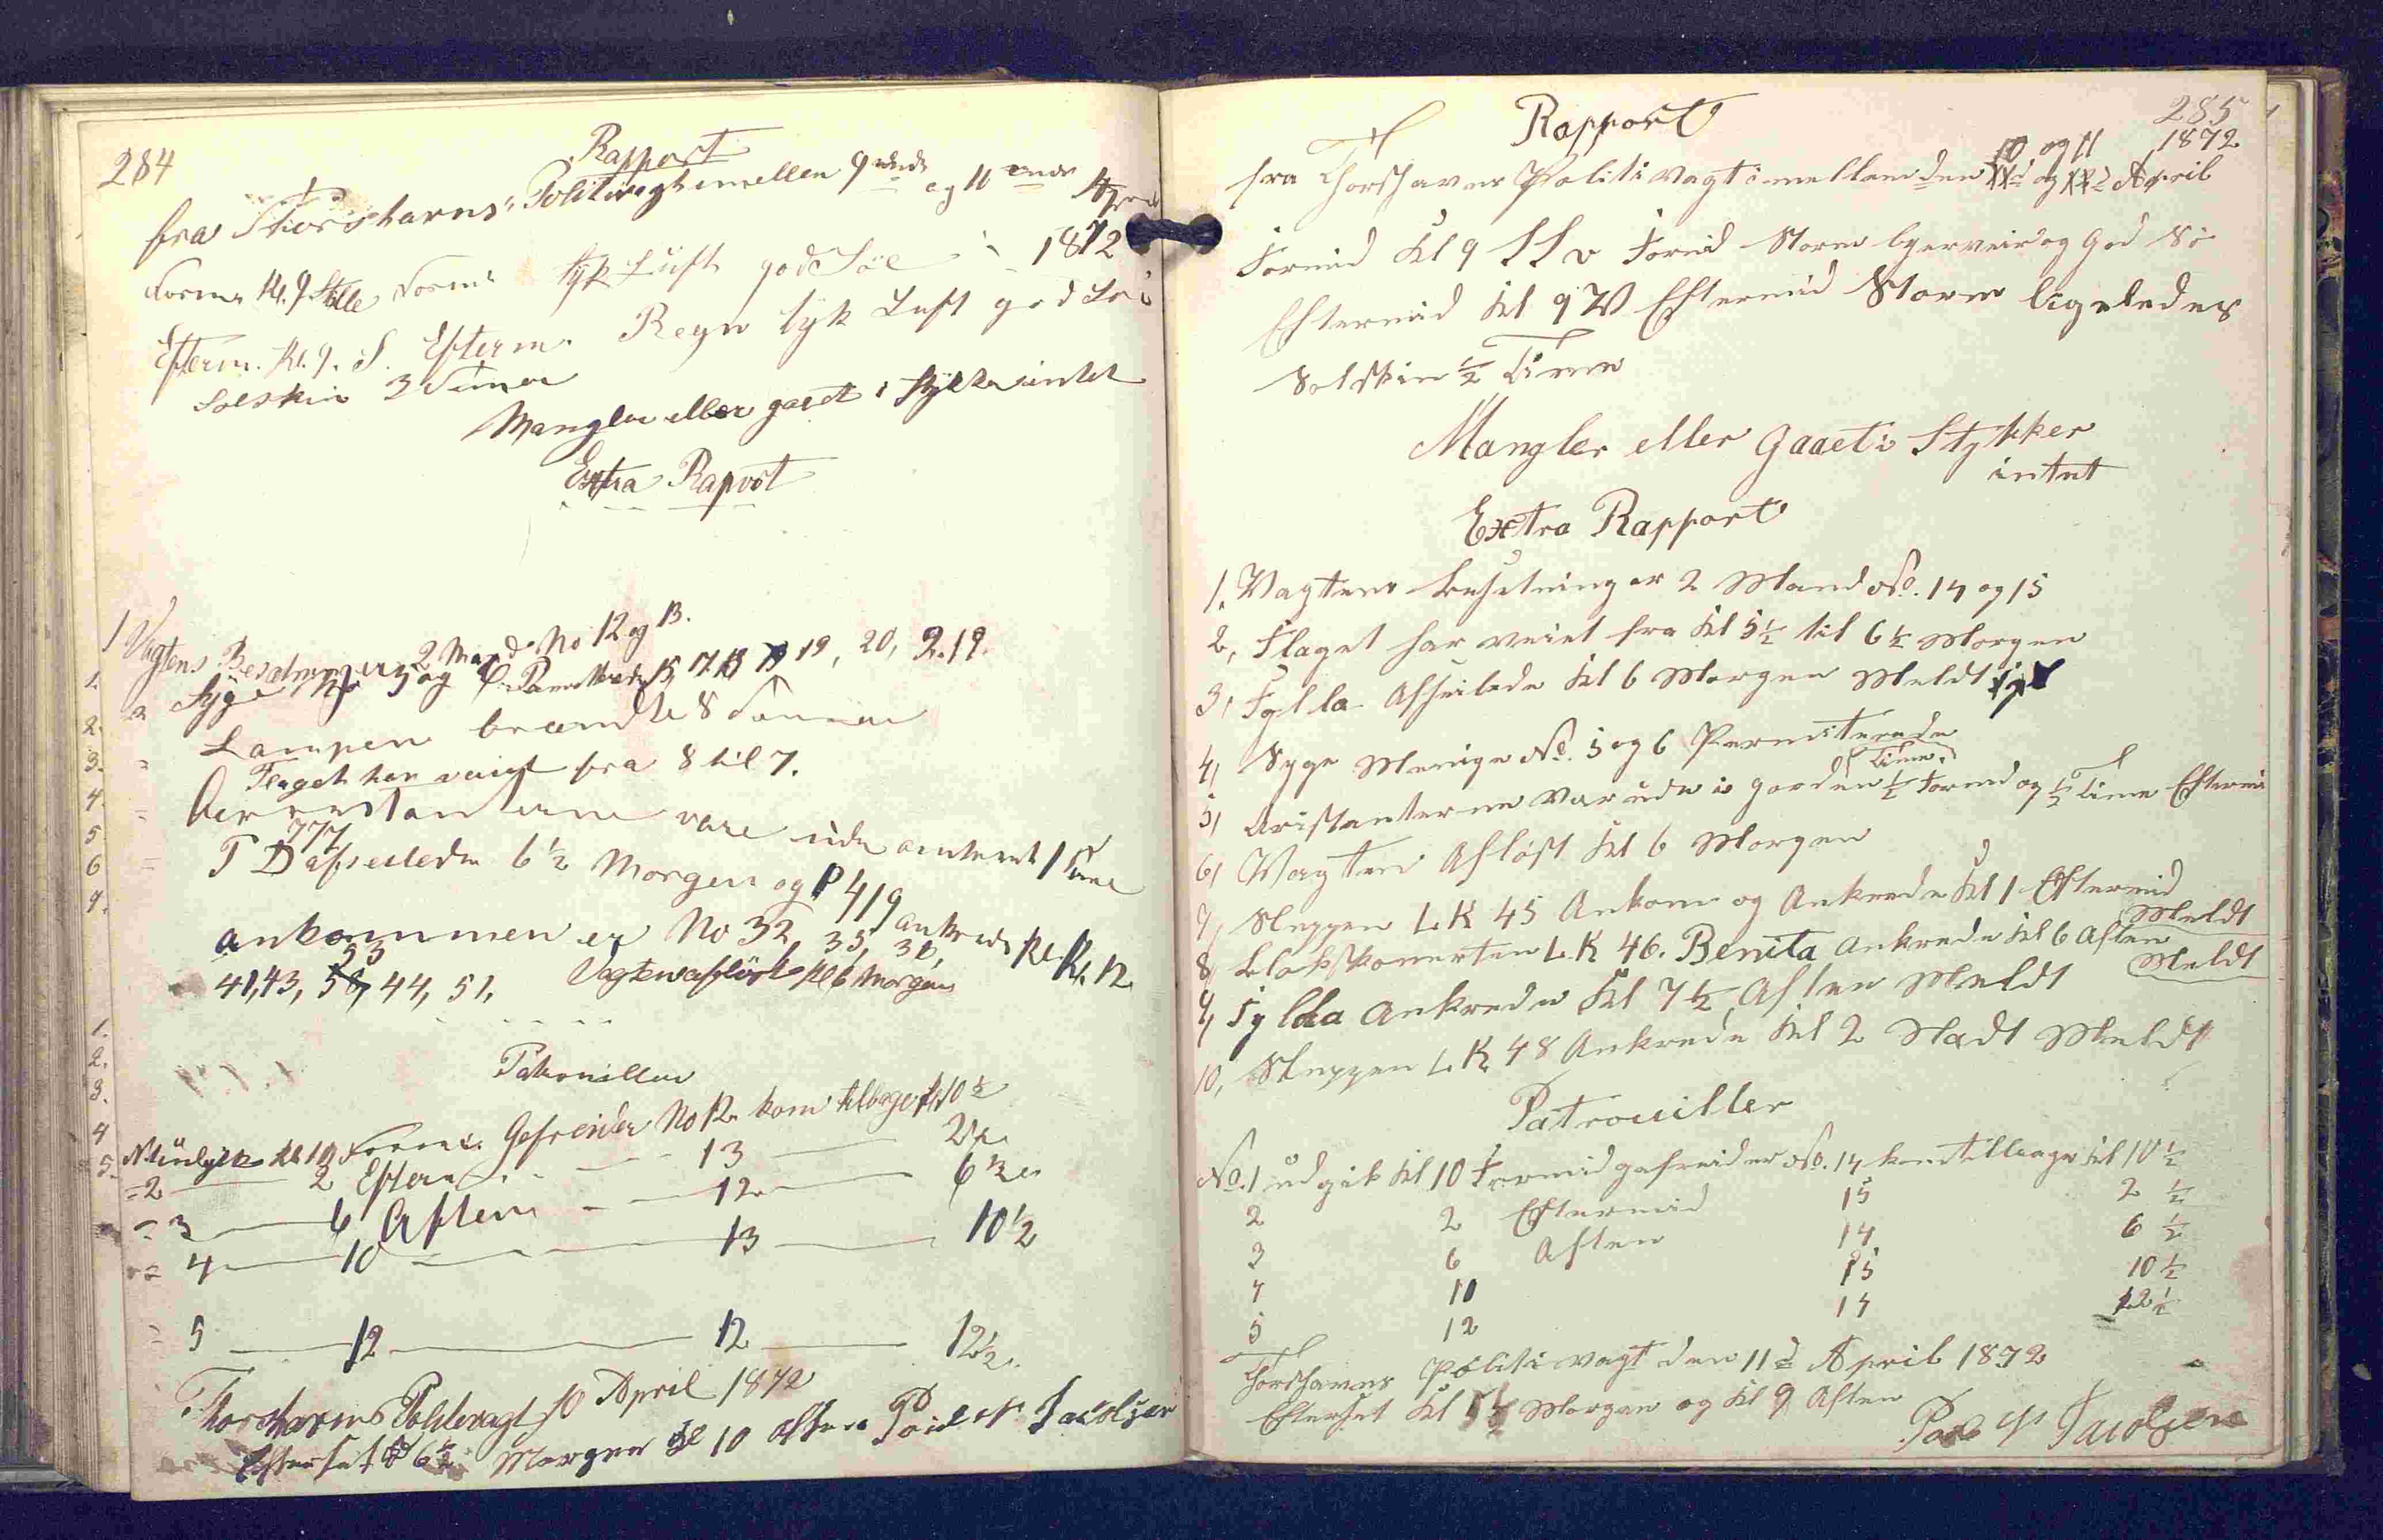 284
Rapport
fra Thorshavns Politivagt imellem 9ende og 10ende April
1872
Form. Kl. 9. Stille Form. tyk Luft god Söe
Efterm. Kl. 9. S. Efterm. Regn tyk Luft god Söe
Solskin 3 Timer
Mangler eller gaaet i Stykker intet
Extra Raport
1 Vagtens Besætning er 2 Mand No 12 og 13.
2 Syge No 5 og 6. Permiterede 15, 17, 18 19, 20, 2.19.
Lampen brændte 8 Timer
Flaget har vaiet fra 8 til 7.
Arrestanterne vare ude omtrent 1 Time
T D 777 afseilede 6½ Morgen og P 419 ankrede Kl. 12.
ankommen er No 32, 35, 38,
41, 43, 53, 44, 51. Vagten aflöst Kl 6 Morgen
Patrouiller
No 1 udgik Kl 10 Form. Gefreider No 12 kom tilbage Kl 10½
2 2 Efterm. 13 2½
3 6 Aften 12 6½
4 10 13 10½
5 12 12 12½
Thorshavns Politivagt 10 April 1872
Efterset Kl 6½ Morgen Kl 10 Aften Poul P Jacobsen
285
Rapport
fra Thorshavns Politivagt imellem den 10 og 11 April 1872
Formid Kl 9 SSv Formid Storm byerveir og god Sö
Eftermid Kl 9 V Eftermid Storm ligeledes
Solskin ½ Time
Mangler eller gaaet i Stykker
intet
Extra Rapport
1. Vagtens besetning er 2 Mand No. 14 og 15
2, Flaget har veiet fra Kl 5½ til 6½ Morgen
3, Fylla Afseilede Kl 6 Morgen Meldt
4, Syge Menige No. 5 og 6 Permiterede
5, Aristanterne var ude i gorden ½ Time Formid og ½ Time Eftermid
6, Vagten Aflöst Kl 6 Morgen
7, Sluppen L. K 45 Ankom og Ankrede Kl 1 Eftermid Meldt
8, L. K 46. Benita Ankrede Kl 6 Aften Meldt
9, Fylla Ankrede Kl 7½ Aften Meldt
10, Sluppen L. K 48 Ankrede Kl 2 Nadt Meldt
Patrouiller
No. 1 udgik Kl 10 Formid gefreider No. 14 kom tilbage Kl 10½
2 2 Eftermid 15 2½
3 6 Aften 14 6½
4 10 15 10½
5 12 14 12½
Thorshavns Politivagt den 11 April 1872
Efterset Kl 5½ Morgen og Kl 9 Aften
Poul P Jacobsen